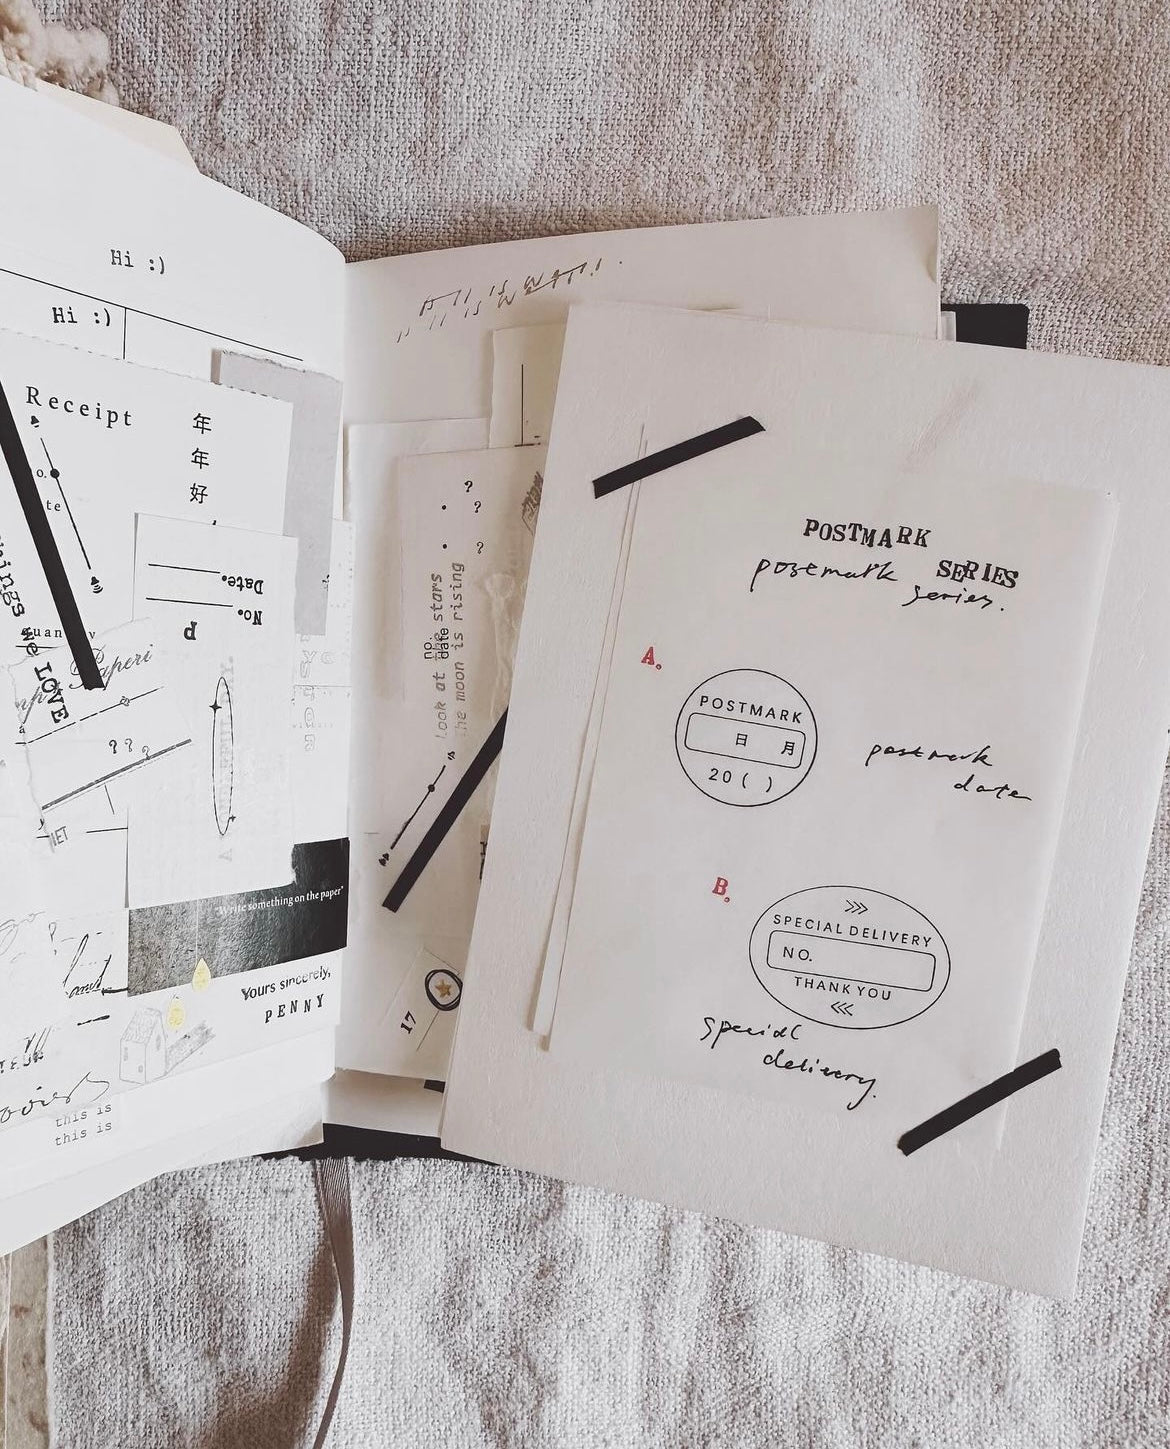 Hi :)
Hi :)
Receipt
年
年
好
o.
te
things we LOVE
Date.
No.
P
Paperi
? ? ?
"Write something on the paper"
Yours sincerely,
PENNY
this is
this is
?
?
?
Look at the stars
the moon is rising
no.
date
17
POSTMARK
SERIES
postmark
series.
A.
POSTMARK
日 月
20 ( )
postmark
date
B.
SPECIAL DELIVERY
NO.
THANK YOU
special
delivery.